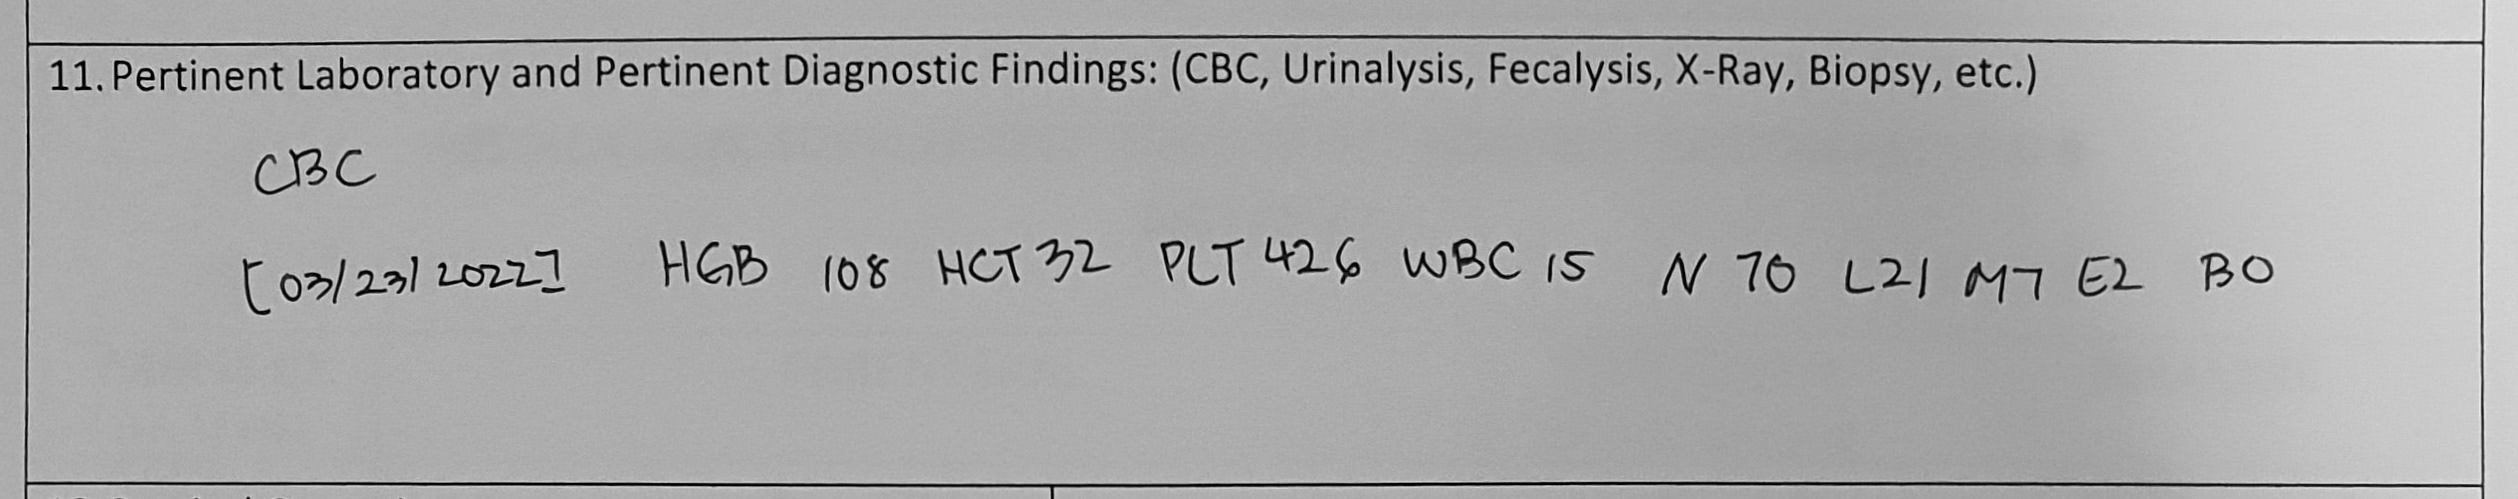 11. Pertinent Laboratory and Pertinent Diagnostic Findings: (CBC, Urinalysis, Fecalysis, X-Ray, Biopsy, etc.)
CBC
[03/23/2022] HGB 108 HCT 32 PLT 426 WBC 15 N 70 L21 M7 E2 B0